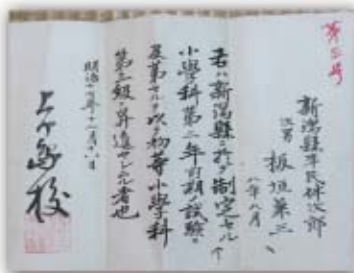 第三号
新潟縣平民伴次郎
次男 板垣兼三
八年八月
右ハ新潟縣ニ於テ制定セル
小學科第二年前期ノ試験ニ
及第セルヲ以テ初等小學科
第三級ニ昇進セシムル者也
明治十七年十一月十八日
校